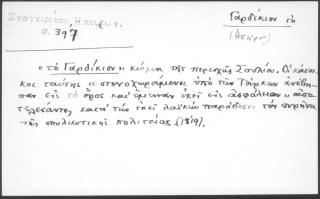 Στογειρίτου, Ηπειρωτ.
σ. 397
Γαρδίκιον το
(Ήπειρ)
"το Γαρδίκιον" κώμη της περιοχής Σουλίου. Οι κάτοι-
κοι ταύτης "στενοχωρούμενοι υπό των Τούρκων ανέβη-
σαν εις το όρος και έμειναν εκεί εις ασφάλειαν" απο-
τελέσαντες κατά των εκεί λαϊκών παράδοσιν τον πυρήνα
της σουλιωτικής πολιτείας (1819).